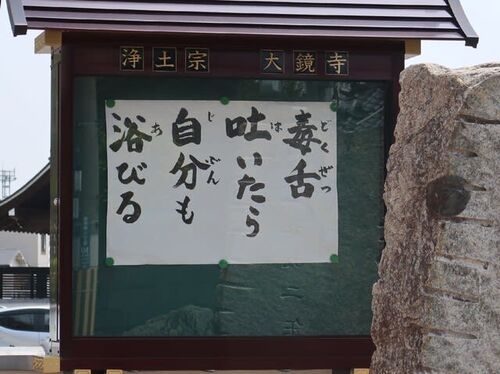 浄土宗 大鏡寺
毒舌
吐いたら
自分も
浴びる
どくぜつ
は
じぶん
あ